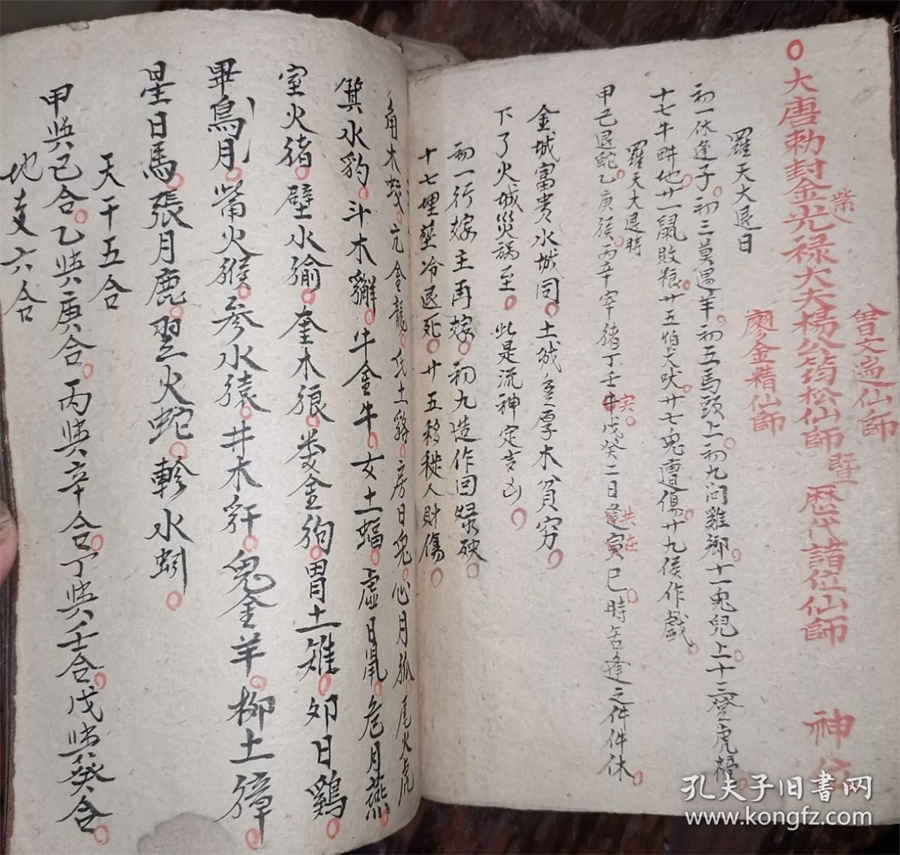 大唐勅封金紫光禄大夫楊公筠松仙師 暨 歷代諸位仙師 神位
曾文遄仙師
廖金精仙師
羅天大退日
初一休逢子。初三莫遇羊。初五馬頭上。初九问雞鄉。十一兔兒上。十三登虎榜。
十七牛畊地。廿一鼠敗粮。廿五伯犬吠。廿七兔遭傷。廿九侯作戲
羅天大退時
甲己退蛇乙庚猴。丙辛宰猪丁壬牛。戊癸二日逢寅巳時若逢之件件休。
实
共在
金城富贵水城同。土城至厚木貧穷。
下了火城災祸至。此是流神定吉凶。
初一行嫁主再嫁。初九造作回禄殃
十七埋塟冷退死。廿五移徙人財傷。
角木蛟。亢金龍。氐土貉。房日兔。心月狐。尾火虎
箕水豹。斗木獬。牛金牛。女土蝠。虛日鼠。危月燕。
室火猪。壁水㺄。奎木狼。婁金狗。胃土雉。卯日鷄
畢鳥月。觜火猴。参水猿。井木犴。鬼金羊。柳土獐。
星日馬。張月鹿。翌火蛇。軫水蚓
天干五合
甲與己合。乙與庚合。丙與辛合。丁與壬合。戊與癸合。
地支六合
孔夫子旧書网
www.kongfz.com